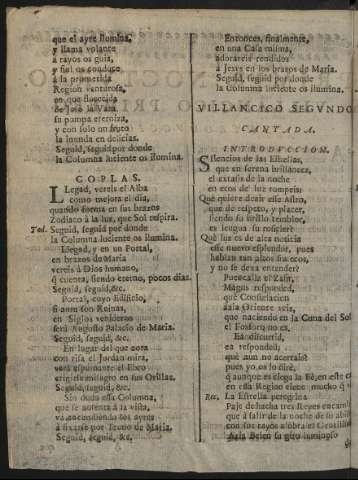 que el ayre ilumina,
y llama volante
a rayos os guia,
y fiel os conduce
à la prometida
Region venturosa,
en que florecida
de Josè la Vara
su pompa eterniza,
y con solo un fruto
la inunda en delicias.
Seguid, seguid por donde
la Columna luciente os ilumina.
COPLAS.
LLegad, vereis el Alba
como mejora el dia,
quando forma en sus brazos
Zodiaco à la luz, que Sol respira.
Tod. Seguid, seguid por donde
la Columna luciente os ilumina.
Llegad, y en un Portal,
en brazos de Maria
vereis à Dios humano,
q̃ cuenta, siendo eterno, pocos dias.
Seguid, seguid, &c.
Portal, cuyo Edificio,
si aora son Ruinas,
en Siglos venideros
serà Augusto Palacio de Maria.
Seguid, seguid, &c.
En lugar del que aora
con risa el Jordan mira,
verà
erigirle milagro en sus Orillas.
Seguid, seguid, &c.
Sin duda essa Columna,
que se ausenta à la vista,
và encendiendo los ayres
à fixarse por Tecuo de Maria.
Seguid, seguid, &c.
Entonces, finalmente,
en una Casa misma,
adorareis rendidos
à Jesus en los brazos de Maria.
Seguid, seguid por donde
la Columna luciente os ilumina.
VILLANCICO SEGVNDO
CANTADA.
INTRODVCCION.
SIlencios de las Estrellas,
que en serena brillantez,
el extasis de la noche
en ecos de luz rompeis:
Què quiere dezir esse Astro,
que de respeto, y placer,
siendo su brillo temblor,
es lengua su rosicler?
Què luz es de alta noticia
esse nuevo esplendor, pues
hablan tan altos sus ecos,
y no se dexa entender?
Pues calla el Zafir,
Magos responded,
què Constelacion
dasa Oriente seis,
que naciendo en la Cuna del Sol
el Fosforo no es.
Ea discurrid,
ea responded;
què aun no acertais?
pues yo os lo dirè,
q̃ aunque es ciega la Fè, en este caso
en esta Region tiene mucho q̃ ver
Rec. La Estrella peregrina
Paje de hacha tres Reyes encamina
que à salir de la noche de su
con sus rayos alobra el Grosellero
Azia Belen su giro luminoso